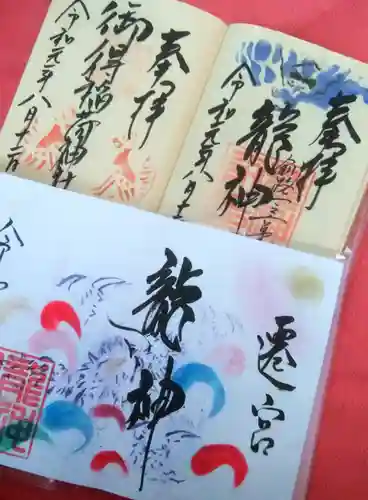 奉拝
御得稲荷神社
令和元年八月十二日
奉拝
龍神
令和元年八月十二
遷宮
龍神
令和
龍神